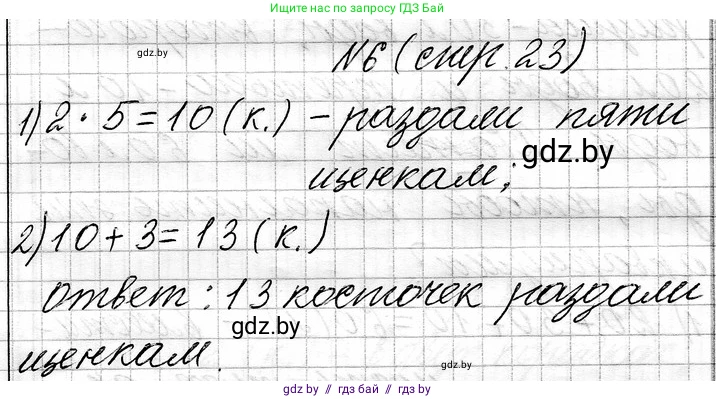 Ищите нас по запросу ГДЗ Бай
gdz.by
№6 (стр. 23)
1) 2 · 5 = 10 (к.) – раздали пяти
щенкам;
gdz.by
2) 10 + 3 = 13 (к.)
Ответ: 13 косточек раздали
gdz.by
щенкам.
gdz.by // гдз бай // гдз by